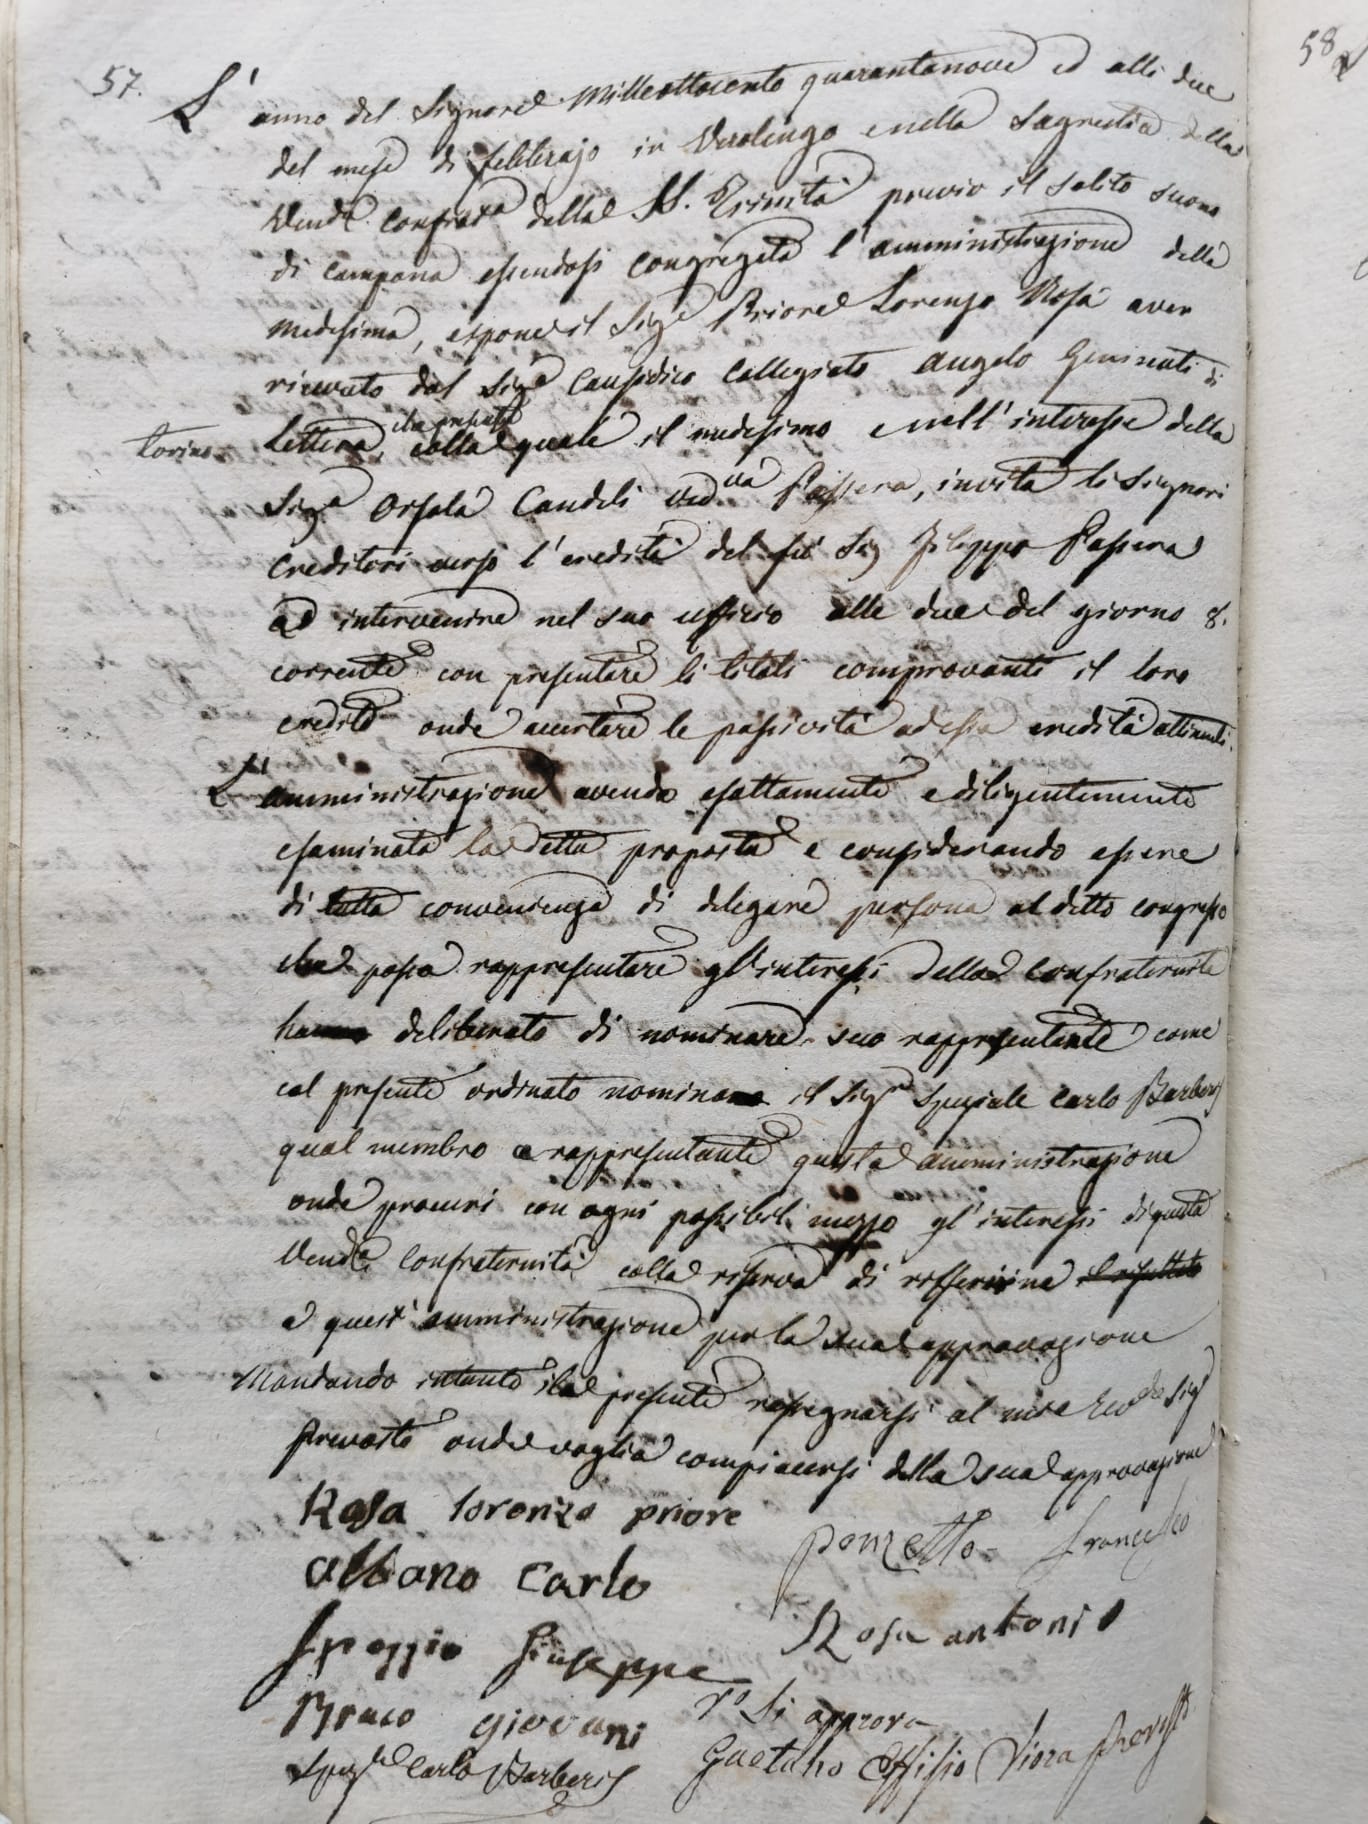 57.
58
L'anno del Signore Milleottocento quarantanove ed alli due
del mese di febbrajo in Verolengo e nella Sagrestia della
Vend.e Confrat.a della SS. Trinità previo il solito suono
di campana essendosi congregata l'amministrazione della
medesima, espone il Sig.e Priore Lorenzo Rosa aver
ricevuto dal Sig.e Causidico Collegiato Angelo Geninati di
Torino
Lettera, colla quale il medesimo e nell'interesse della
Sig.a Orsola Candeli ved.va Passera, invita li Signori
Creditori verso l'eredità del fu Sig Filippo Passera
ad intervenire nel suo uffizio alle due del giorno 8.
corrente con presentare li titoli comprovanti il loro
credito onde accertare le passività ad essa eredità attinenti.
L'amministrazione avendo esattamente e diligentemente
esaminata la detta proposta e considerando essere
di tutta convenienza di delegare persona al detto congresso
che possa rappresentare gl'interessi della Confraternita
deliberato di nominare suo rappresentante come
col presente ordinato nomina il Sig.e Speziale Carlo Barberis
qual membro e rappresentante questa amministrazione
onde procuri con ogni possibil mezzo gl'interessi di questa
Vend.a Confraternita colla riserva di rifferirne il risultato
a quest'amministrazione per la sua approvazione
Mandando intanto il presente rassegnarsi al Rev.do Sig.r
Prevosto onde voglia compiacersi della sua approvazione
Rosa lorenzo priore
ponzetto francesco
Albano Carlo
Rosa antonio
Speggio Giuseppe
Bruco giovani
V.o Si approva
Spez.le Carlo Barberis
Gaetano Effisio Viora Prevosto